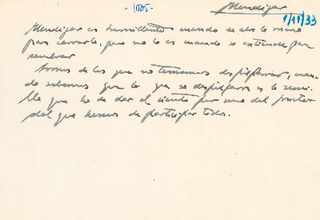 -1025-
Mendigar
1/11/33
Mendigar es humillante cuando se abre la mano
para cerrarla, pero no lo es cuando se extiende para
sembrar
Somos de los que no tememos despilfarrar, cuan-
do sabemos que lo que se despilfarra es la semi-
lla que ha de dar el ciento por uno del fruto
del que hemos de participar todos.